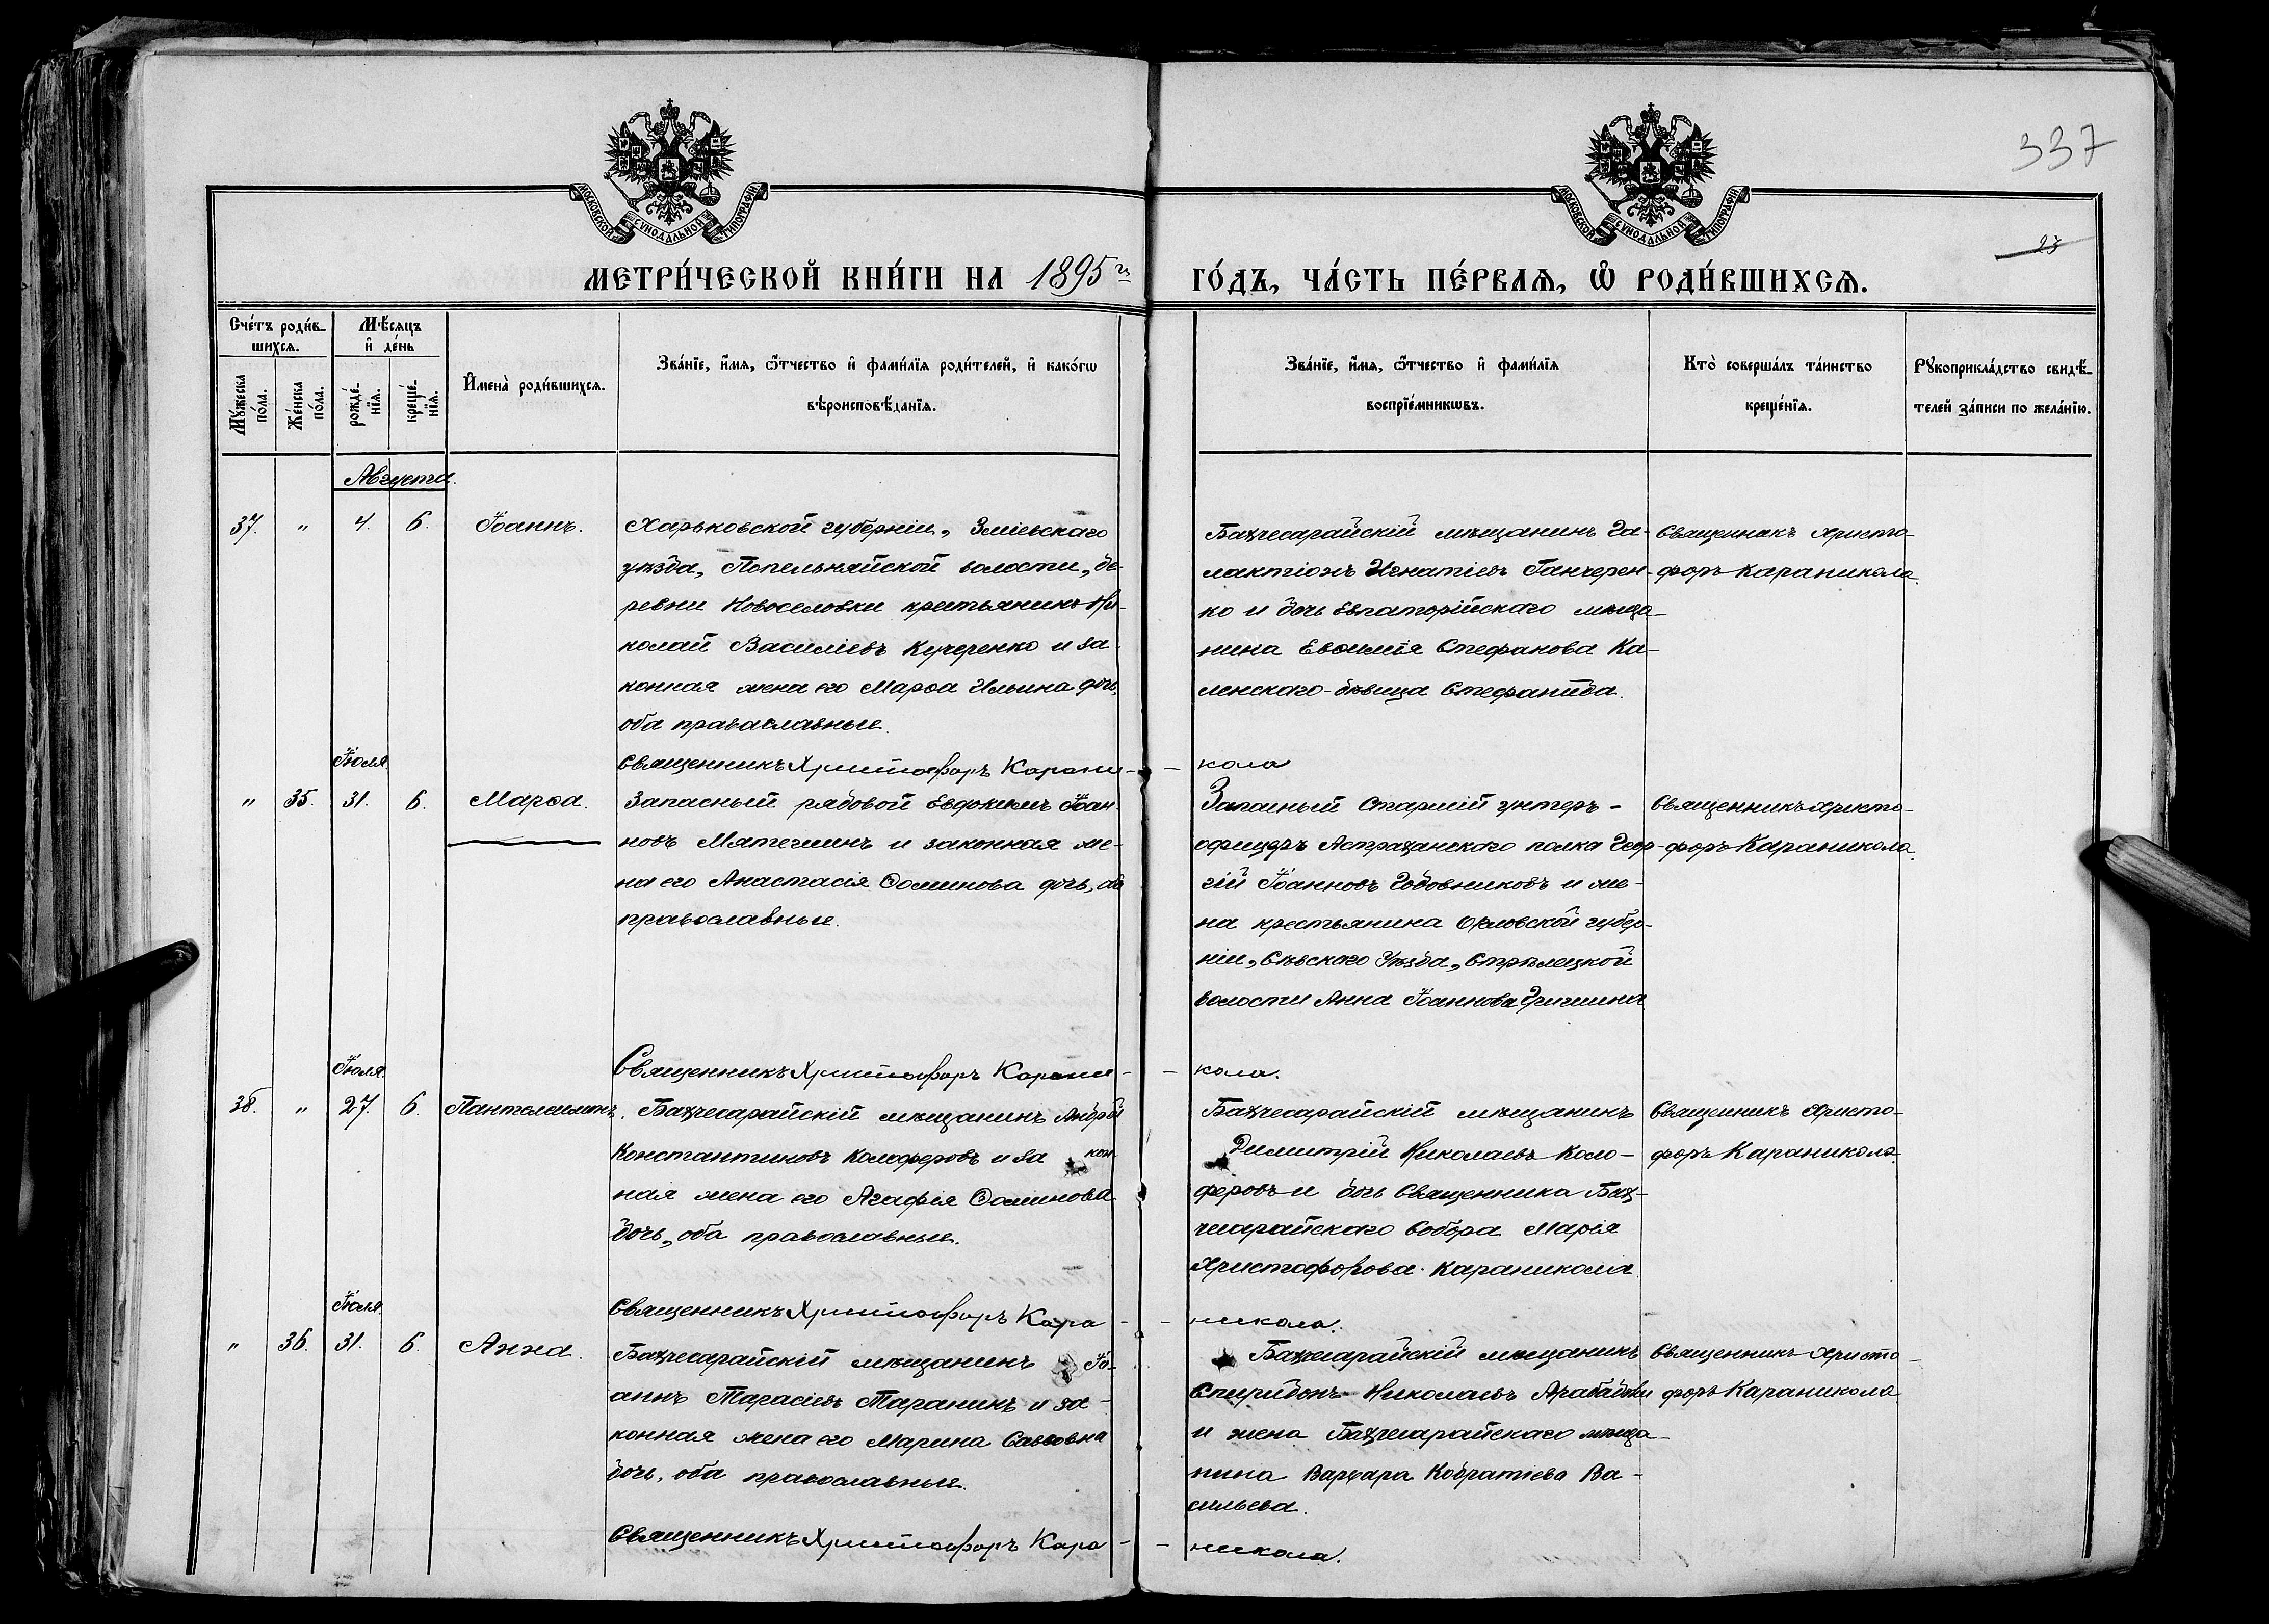 337
МОСКОВСКОЙ СѴНОДАЛЬНОЙ ТИПОГРАФІИ
МОСКОВСКОЙ СѴНОДАЛЬНОЙ ТИПОГРАФІИ
23
МЕТРИ́ЧЕСКОЙ КНИ́ГИ НА 1895й ГО́ДЪ, ЧА́СТЬ ПЕ́РВАѦ, Ѽ РОДИ́ВШИХСѦ.
Сче́тъ роди́в-
шихсѧ.
Мѣ́сѧцъ
и҆ де́нь
Мꙋ́жеска по́ла.
Же́нска по́ла.
рожде́-нїѧ.
креще́-нїѧ.
И҆мена̀ роди́вшихсѧ.
Зва́нїе, и҆́мѧ, ѻ҆́тчество и҆ фами́лїѧ роди́телей, и҆ како́гѡ
вѣроисповѣ́данїѧ.
Зва́нїе, и҆́мѧ, ѻ҆́тчество и҆ фами́лїѧ
воспрїе́мникѡвъ.
Кто̀ соверша́лъ та́инство
креще́нїѧ.
Рꙋкоприкла́дство свидѣ́-
телей за́писи по жела́нїю.
Августа.
37. " 4. 6. Іоаннъ.
Харьковской губерніи, Зміевскаго
уѣзда, Попельняйской волости, де-
ревни Новоселовки крестьянинъ Ни-
колай Василіевъ Кучеренко и за-
конная жена его Марѳа Ильина дочь,
оба православные.
Бахчесарайскій мѣщанинъ Га-
лактіонъ Игнатіевъ Ганчерен-
ко и дочь Евпаторійскаго мѣща-
нина Евѳимія Стефанова Ка-
ленскаго-дѣвица Стефанида.
Священникъ Христо-
форъ Караникола.
Священникъ Христофоръ Карани-
- кола
Іюля.
" 35. 31. 6. Марѳа.
Запасный рядовой Евдокимъ Іоан-
новъ Мятегинъ и законная же-
на его Анастасія Ѳомин​ова дочь, оба
православные.
Запасный Старшій унтеръ-
офицеръ Астраханскаго полка Геор-
гій Іоанновъ Годовниковъ и же-
на крестьянина Орловской губер-
ніи, Сѣвскаго Уѣзда, Стрѣлецкой
волости Анна Іоаннова Гришина.
Священникъ Христо-
форъ Караникола.
Священникъ Христофоръ Карани-
- кола.
Іюля.
38. " 27. 6. Пантелеимонъ.
Бахчесарайскій мѣщанинъ Андрей
Константиновъ Колоферовъ и за кон-
ная жена его Агафія Ѳоминова
дочь, оба православные.
Бахчесарайскій мѣщанинъ
Димитрій Николаевъ Коло-
феровъ и дочь Священника Бах-
чесарайскаго Собора Марія
Христофорова Караникола.
Священникъ Христо-
форъ Караникола.
Священникъ Христофоръ Кара-
- никола.
Іюля.
" 36. 31. 6. Анна.
Бахчесарайскій мѣщанинъ Іо-
аннъ Тарасіевъ Таранинъ и за-
конная жена его Марина Саввовна
дочь, оба православные.
Бахчесарайскій мѣщанинъ
Спиридонъ Николаевъ Арабаджи
и жена Бахчесарайскаго мѣща-
нина Варвара Кодратіева Ва-
сильева.
Священникъ Христо-
форъ Караникола.
Священникъ Христофоръ Кара-
- никола.